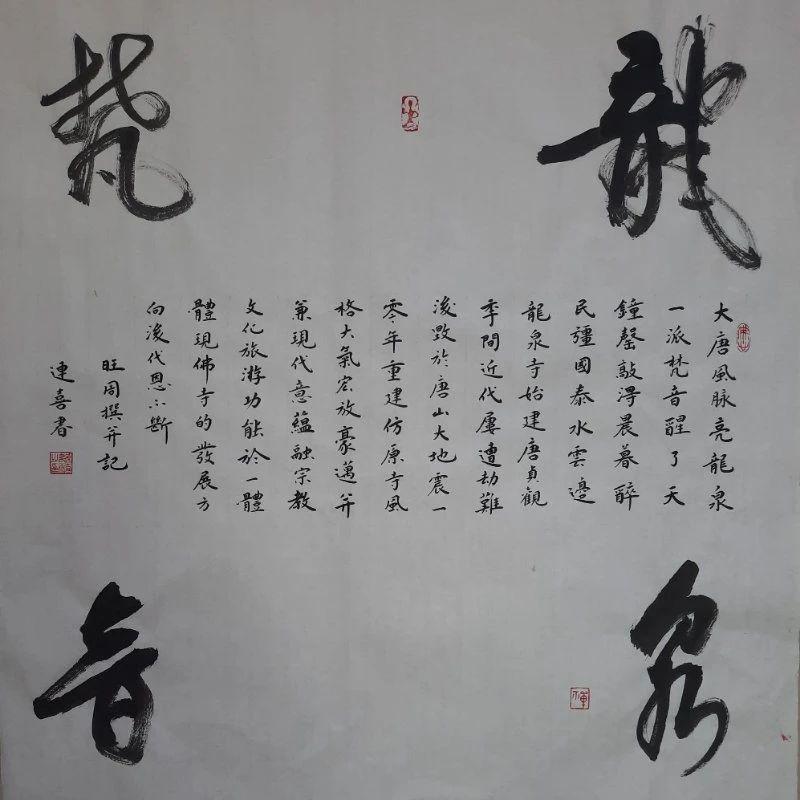 龍
泉
梵
音
大唐風脉亮龍泉
一派梵音醒了天
鐘罄敲浔晨暮醉
民疆國泰水雲邊
龍泉寺始建唐貞觀
季間近代屢遭劫難
後毀於唐山大地震一
零年重建仿原寺風
格大氣宏放豪邁并
兼現代意蘊融宗教
文化旅游功能於一體
體現佛寺的發展方
向後代恩不斷
旺周撰并記
連喜書